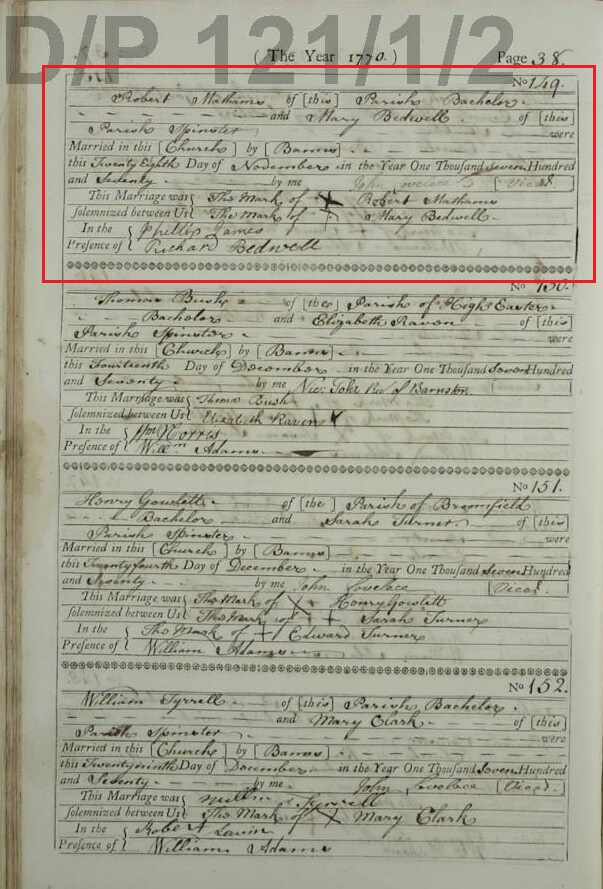 D/P 121/1/2
( The Year 1770. ) Page 38.
No 149.
Robert Mathams of [this] Parish Bachelor.
and Mary Bedwell of [this]
Parish Spinster were
Married in this [Church] by [Banns]
this Twenty Eighth Day of November in the Year One Thousand seven Hundred
and Seventy by me John Lovelace [Vicar]
This Marriage was The Mark of + Robert Mathams
solemnized between Us The Mark of + Mary Bedwell
In the Phillip James
Presence of Richard Bedwell
No 150.
Thomas Bush of [the] Parish of High Easter
Bachelor and Elizabeth Raven of [this]
Parish Spinster were
Married in this [Church] by [Banns]
this Fourteenth Day of December in the Year One Thousand Seven Hundred
and Seventy by me Nic. Toke of Barnston.
This Marriage was Thomas Bush
solemnized between Us Elizabeth Raven
In the Wm Norris
Presence of Willm Adams
No 151.
Henry Gowlett of [the] Parish of Broomfield
Bachelor and Sarah Turner of [this]
Parish Spinster were
Married in this [Church] by [Banns]
this Twenty fourth Day of December in the Year One Thousand Seven Hundred
and Seventy by me John Lovelace [Vicar.
This Marriage was The Mark of X Henry Gowlett
solemnized between Us The Mark of + Sarah Turner
In the The Mark of + Edward Turner
Presence of William Adams
No 152.
William Tyrrell of [this] Parish Bachelor
and Mary Clark of [this]
Parish Spinster were
Married in this [Church] by [Banns]
this Twenty ninth Day of December in the Year One Thousand Seven Hundred
and Seventy by me John Lovelace [Vicar.
This Marriage was Tyrrell
solemnized between Us The Mark of X Mary Clark
In the Robert
Presence of William Adams